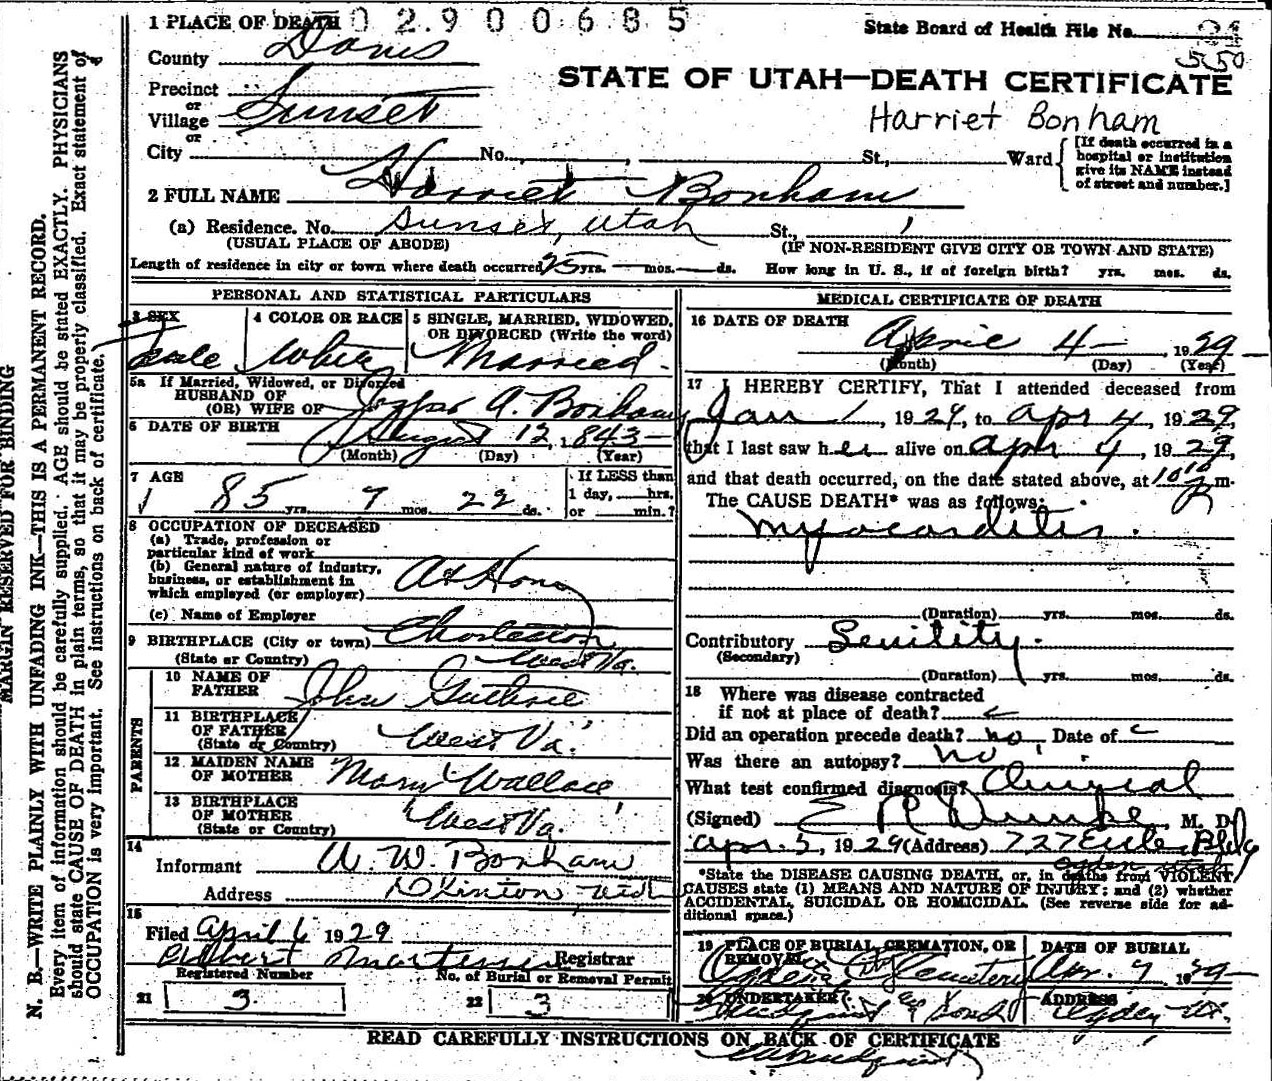 1 PLACE OF DEATH 02900685
State Board of Health File No. 21
550
County Davis
STATE OF UTAH—DEATH CERTIFICATE
Precinct
or
Village Sunset
or
City No. St., Ward
Harriet Bonham
[If death occurred in a hospital or institution give its NAME instead of street and number.]
2 FULL NAME Harriet Bonham
(a) Residence. No. Sunset, Utah St.,
(USUAL PLACE OF ABODE) (IF NON-RESIDENT GIVE CITY OR TOWN AND STATE)
Length of residence in city or town where death occurred 25 yrs. — mos. — ds. How long in U. S., if of foreign birth? yrs. mos. ds.
PERSONAL AND STATISTICAL PARTICULARS
3 SEX
4 COLOR OR RACE White
5 SINGLE, MARRIED, WIDOWED, OR DIVORCED (Write the word) Married
5a If Married, Widowed, or Divorced
HUSBAND OF
(OR) WIFE OF A. Bonham
6 DATE OF BIRTH August 12, 1843
(Month) (Day) (Year)
7 AGE 85 yrs. 7 mos. 22 ds.
If LESS than
1 day, hrs.
or min.?
8 OCCUPATION OF DECEASED
(a) Trade, profession or
particular kind of work
(b) General nature of industry,
business, or establishment in
which employed (or employer) At Home
(c) Name of Employer
9 BIRTHPLACE (City or town) Charleston
(State or Country) West Va.
PARENTS
10 NAME OF FATHER John Guthrie
11 BIRTHPLACE OF FATHER (State or Country) West Va.
12 MAIDEN NAME OF MOTHER Mary Wallace
13 BIRTHPLACE OF MOTHER (State or Country) West Va.
14
Informant A. W. Bonham
Address Clinton, Utah
15
Filed April 6 1929
Albert Registrar
Registered Number No. of Burial or Removal Permit
21 3
22 3
MEDICAL CERTIFICATE OF DEATH
16 DATE OF DEATH
April 4—, 1929—
(Month) (Day) (Year)
17 I HEREBY CERTIFY, That I attended deceased from
Jan 1, 1929, to Apr 4, 1929,
that I last saw her alive on Apr 4, 1929,
and that death occurred, on the date stated above, at 10 m.
The CAUSE DEATH* was as follows:
myocarditis.
(Duration) yrs. mos. ds.
Contributory Senility.
(Secondary)
(Duration) yrs. mos. ds.
18 Where was disease contracted
if not at place of death?
Did an operation precede death? no Date of
Was there an autopsy? no
What test confirmed diagnosis? Clinical
(Signed) E R Dumke, M. D
Apr. 5, 1929 (Address) 727 Eccles Bldg
Ogden Utah
*State the DISEASE CAUSING DEATH, or, in deaths from VIOLENT
CAUSES state (1) MEANS AND NATURE OF INJURY; and (2) whether
ACCIDENTAL, SUICIDAL OR HOMICIDAL. (See reverse side for ad-
ditional space.)
19 PLACE OF BURIAL, CREMATION, OR REMOVAL
Ogden City Cemetery
DATE OF BURIAL
Apr. 7 1929—
20 UNDERTAKER
Lindquist & Sons
ADDRESS
Ogden Ut.
READ CAREFULLY INSTRUCTIONS ON BACK OF CERTIFICATE
MARGIN RESERVED FOR BINDING
N. B.—WRITE PLAINLY WITH UNFADING INK—THIS IS A PERMANENT RECORD.
Every item of information should be carefully supplied. AGE should be stated EXACTLY. PHYSICIANS
should state CAUSE OF DEATH in plain terms, so that it may be properly classified. Exact statement of
OCCUPATION is very important. See instructions on back of certificate.